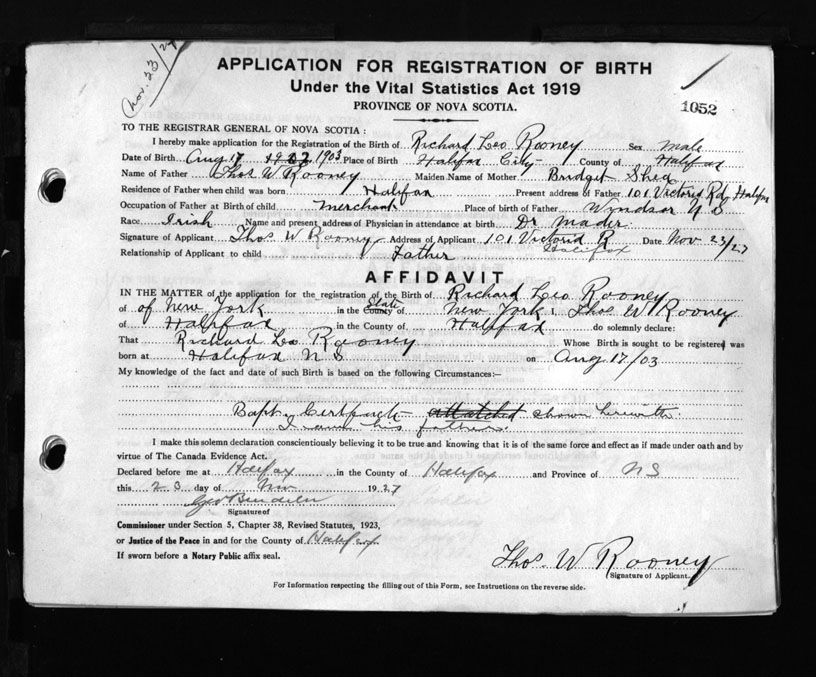 Nov. 23/27
APPLICATION FOR REGISTRATION OF BIRTH
Under the Vital Statistics Act 1919
PROVINCE OF NOVA SCOTIA.
1052
TO THE REGISTRAR GENERAL OF NOVA SCOTIA:
I hereby make application for the Registration of the Birth of Richard Leo Rooney Sex Male
Date of Birth Aug 17 1903 Place of Birth Halifax City County of Halifax
Name of Father Thos W Rooney Maiden Name of Mother Bridget Shea
Residence of Father when child was born Halifax Present address of Father 101 Victoria Rd Halifax
Occupation of Father at Birth of child merchant Place of birth of Father Windsor N S
Race Irish Name and present address of Physician in attendance at birth Dr Mader
Signature of Applicant Thos W Rooney Address of Applicant 101 Victoria R Halifax Date Nov 23/27
Relationship of Applicant to child Father
AFFIDAVIT
IN THE MATTER of the application for the registration of the Birth of Richard Leo Rooney
of of New York in the County State of New York I, Thos W Rooney
of Halifax in the County of Halifax do solemnly declare:
That Richard Leo Rooney Whose Birth is sought to be registered was
born at Halifax N S on Aug 17/03
My knowledge of the fact and date of such Birth is based on the following Circumstances:—
Bapt Certificate attatched shown herewith
I am his father
I make this solemn declaration conscientiously believing it to be true and knowing that it is of the same force and effect as if made under oath and by
virtue of The Canada Evidence Act.
Declared before me at Halifax in the County of Halifax and Province of N S
this 23 day of Nov 1927
Signature of
Commissioner under Section 5, Chapter 38, Revised Statutes, 1923,
or Justice of the Peace in and for the County of Halifax
If sworn before a Notary Public affix seal.
Thos. W Rooney
Signature of Applicant.
For Information respecting the filling out of this Form, see Instructions on the reverse side.